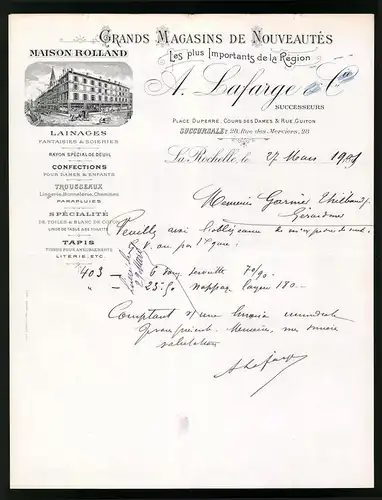 GRANDS MAGASINS DE NOUVEAUTÉS
MAISON ROLLAND
Les plus Importants de la Région
A. Lafarge & Cie
SUCCESSEURS
PLACE DUPERRÉ, COURS DES DAMES & RUE GUITON
SUCCURSALE: 28, Rue des Merciers, 28
LAINAGES
FANTAISIES & SOIERIES
RAYON SPÉCIAL DE DEUIL
CONFECTIONS
POUR DAMES & ENFANTS
TROUSSEAUX
Lingerie, Bonneterie, Chemises
PARAPLUIES
SPÉCIALITÉ
DE TOILES & BLANC DE COTON
LINGE DE TABLE & DE TOILETTE
TAPIS
TISSUS POUR AMEUBLEMENTS
LITERIE, ETC.
La Rochelle, le 27 Mars
Messieurs Garnier Thiébaut
Gérardmer
Veuillez avoir l'obligeance de
403 6 douz serviette 70/90
" 25.50 nappage 180
Comptant
Messieurs, mes
salutations
A Lafarge